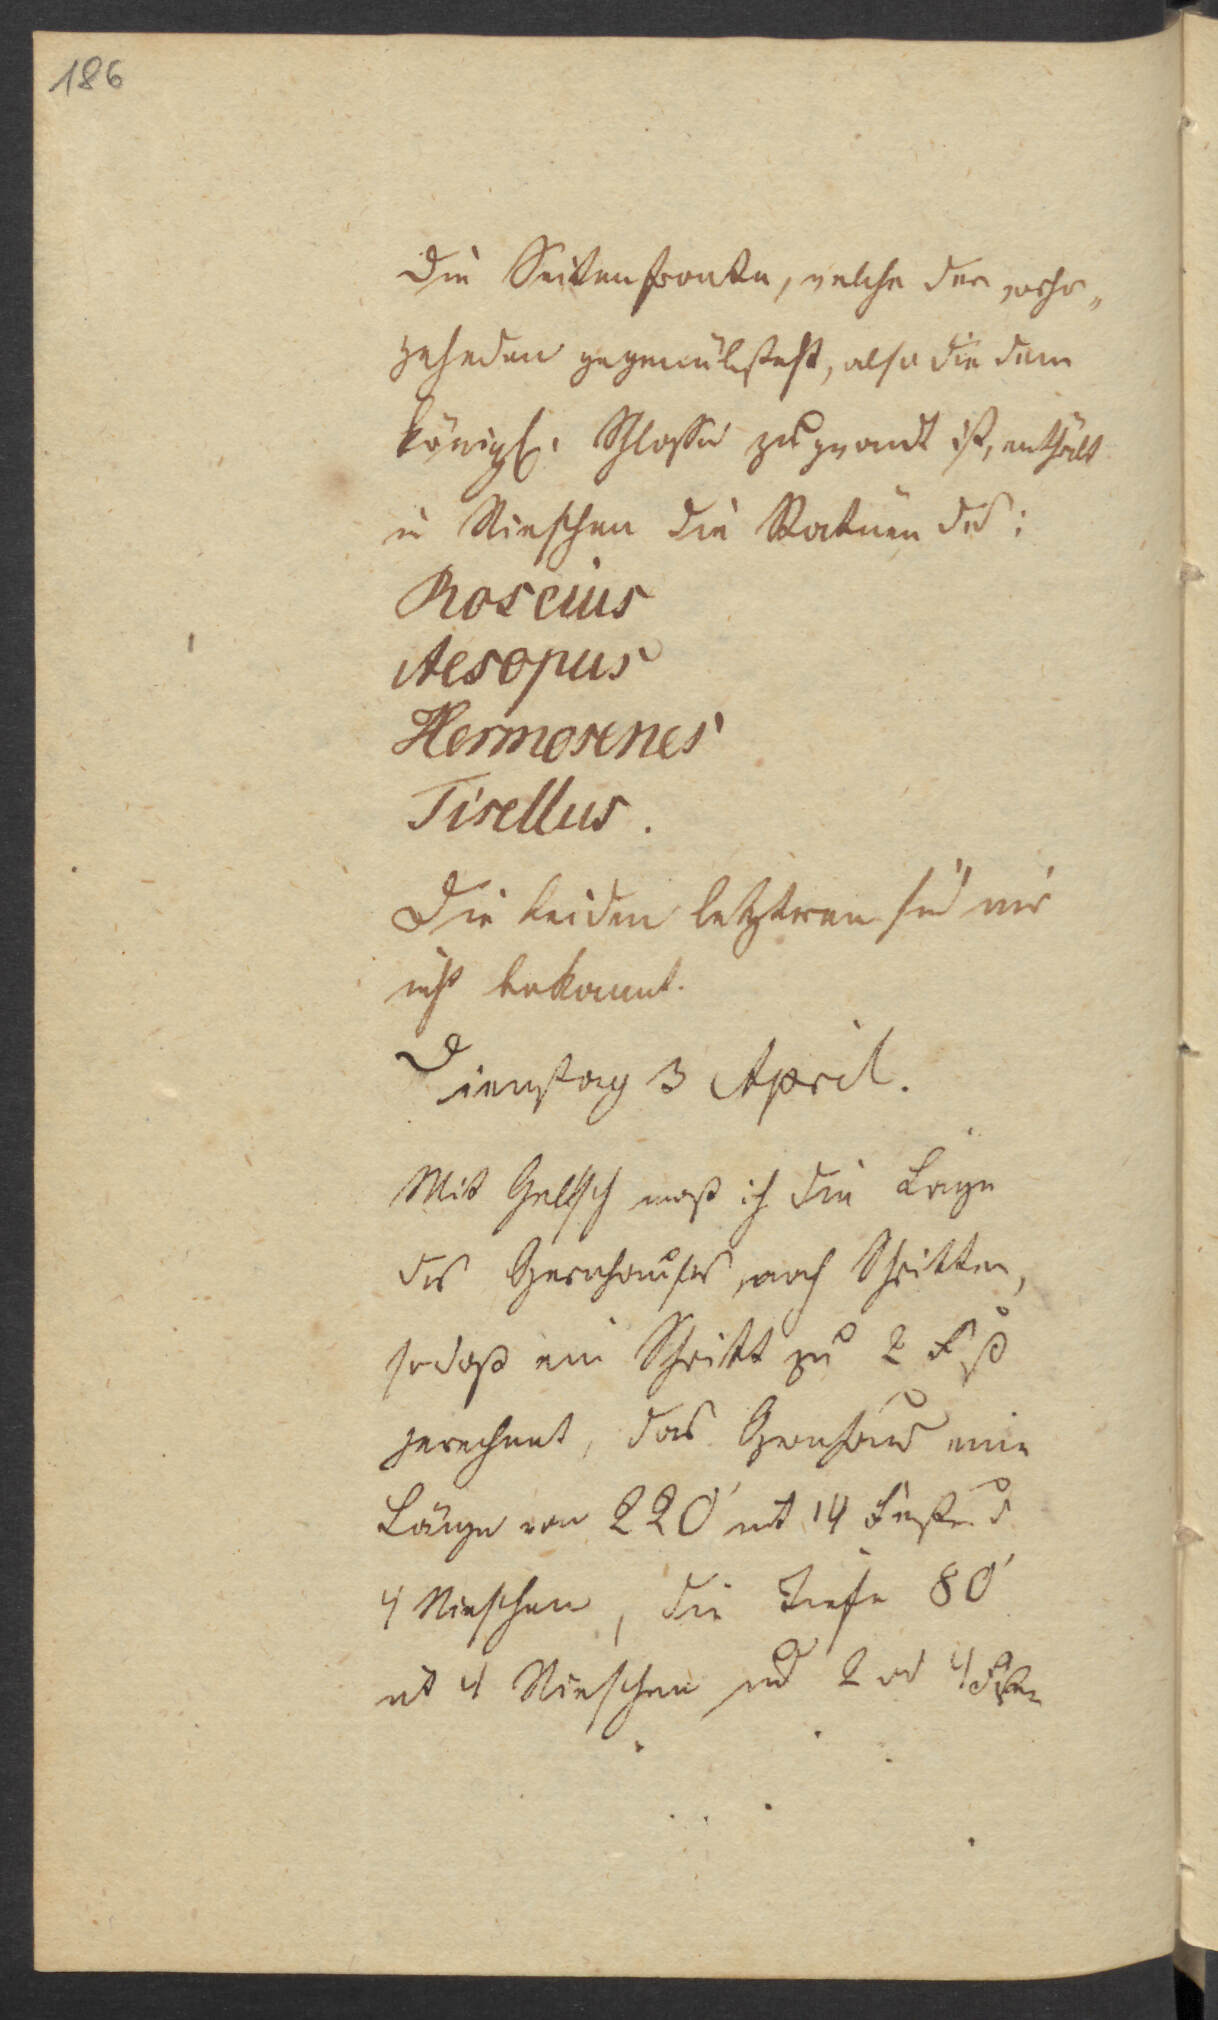 186
Die Seitenfronte, welche der vorher„
gehenden gegenübersteht, also die dem
königl. Schlosse zugewandt ist, enthält
in Nieschen die Statüen des:
Roscius
Aesopus
Hermosenes
Tisellus.
Die beiden letztren sind mir
nicht bekannt.
Dienstag 3 April.
Mit maß ich die Länge
des Opernhauses nach Schritten,
sodaß ein Schritt zu 2 Fuß
gerechnet, das Opernhaus eine
Länge von 220' mit 14 Fenster und
4 Nieschen, die Tiefe 80'
mit 4 Nieschen und 2 od 4